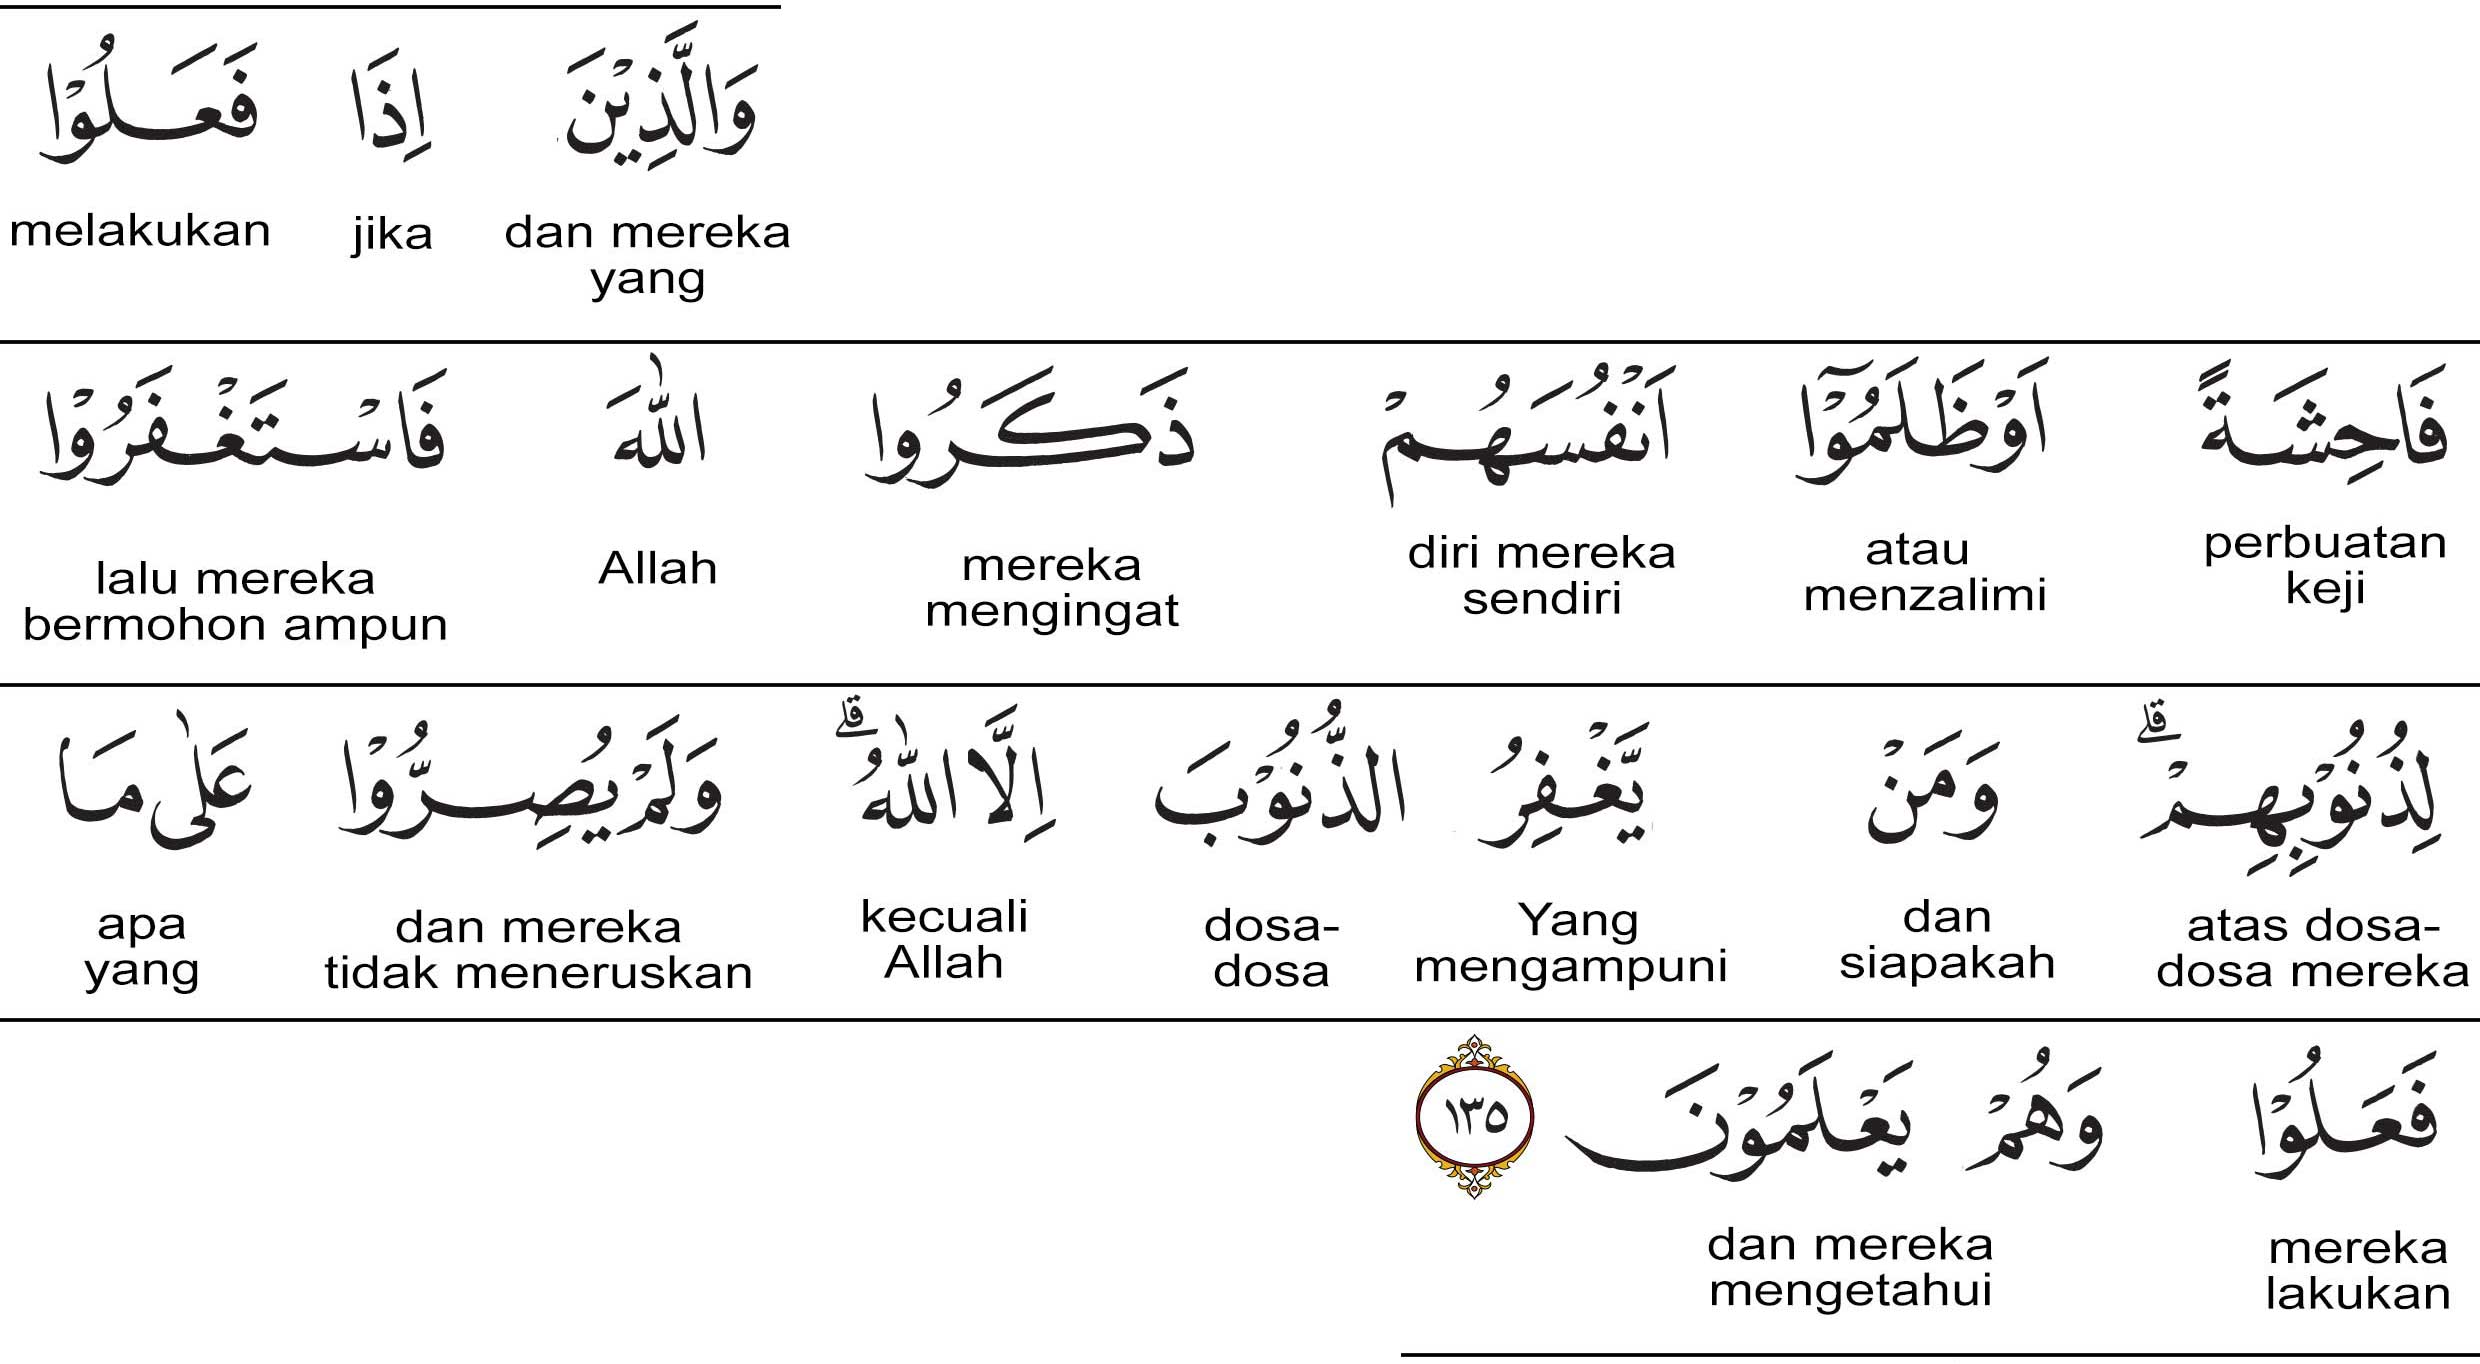 وَالَّذِيْنَ اِذَا فَعَلُوْا
dan mereka yang jika melakukan
فَاحِشَةً اَوْ ظَلَمُوْٓا اَنْفُسَهُمْ ذَكَرُوا اللّٰهَ فَاسْتَغْفَرُوْا
perbuatan keji atau menzalimi diri mereka sendiri mereka mengingat Allah lalu mereka bermohon ampun
لِذُنُوْبِهِمْۗ وَمَنْ يَّغْفِرُ الذُّنُوْبَ اِلَّا اللّٰهُۗ وَلَمْ يُصِرُّوْا عَلٰى مَا
atas dosa-dosa mereka dan siapakah Yang mengampuni dosa-dosa kecuali Allah dan mereka tidak meneruskan apa yang
فَعَلُوْا وَهُمْ يَعْلَمُوْنَ ١٣٥
mereka lakukan dan mereka mengetahui